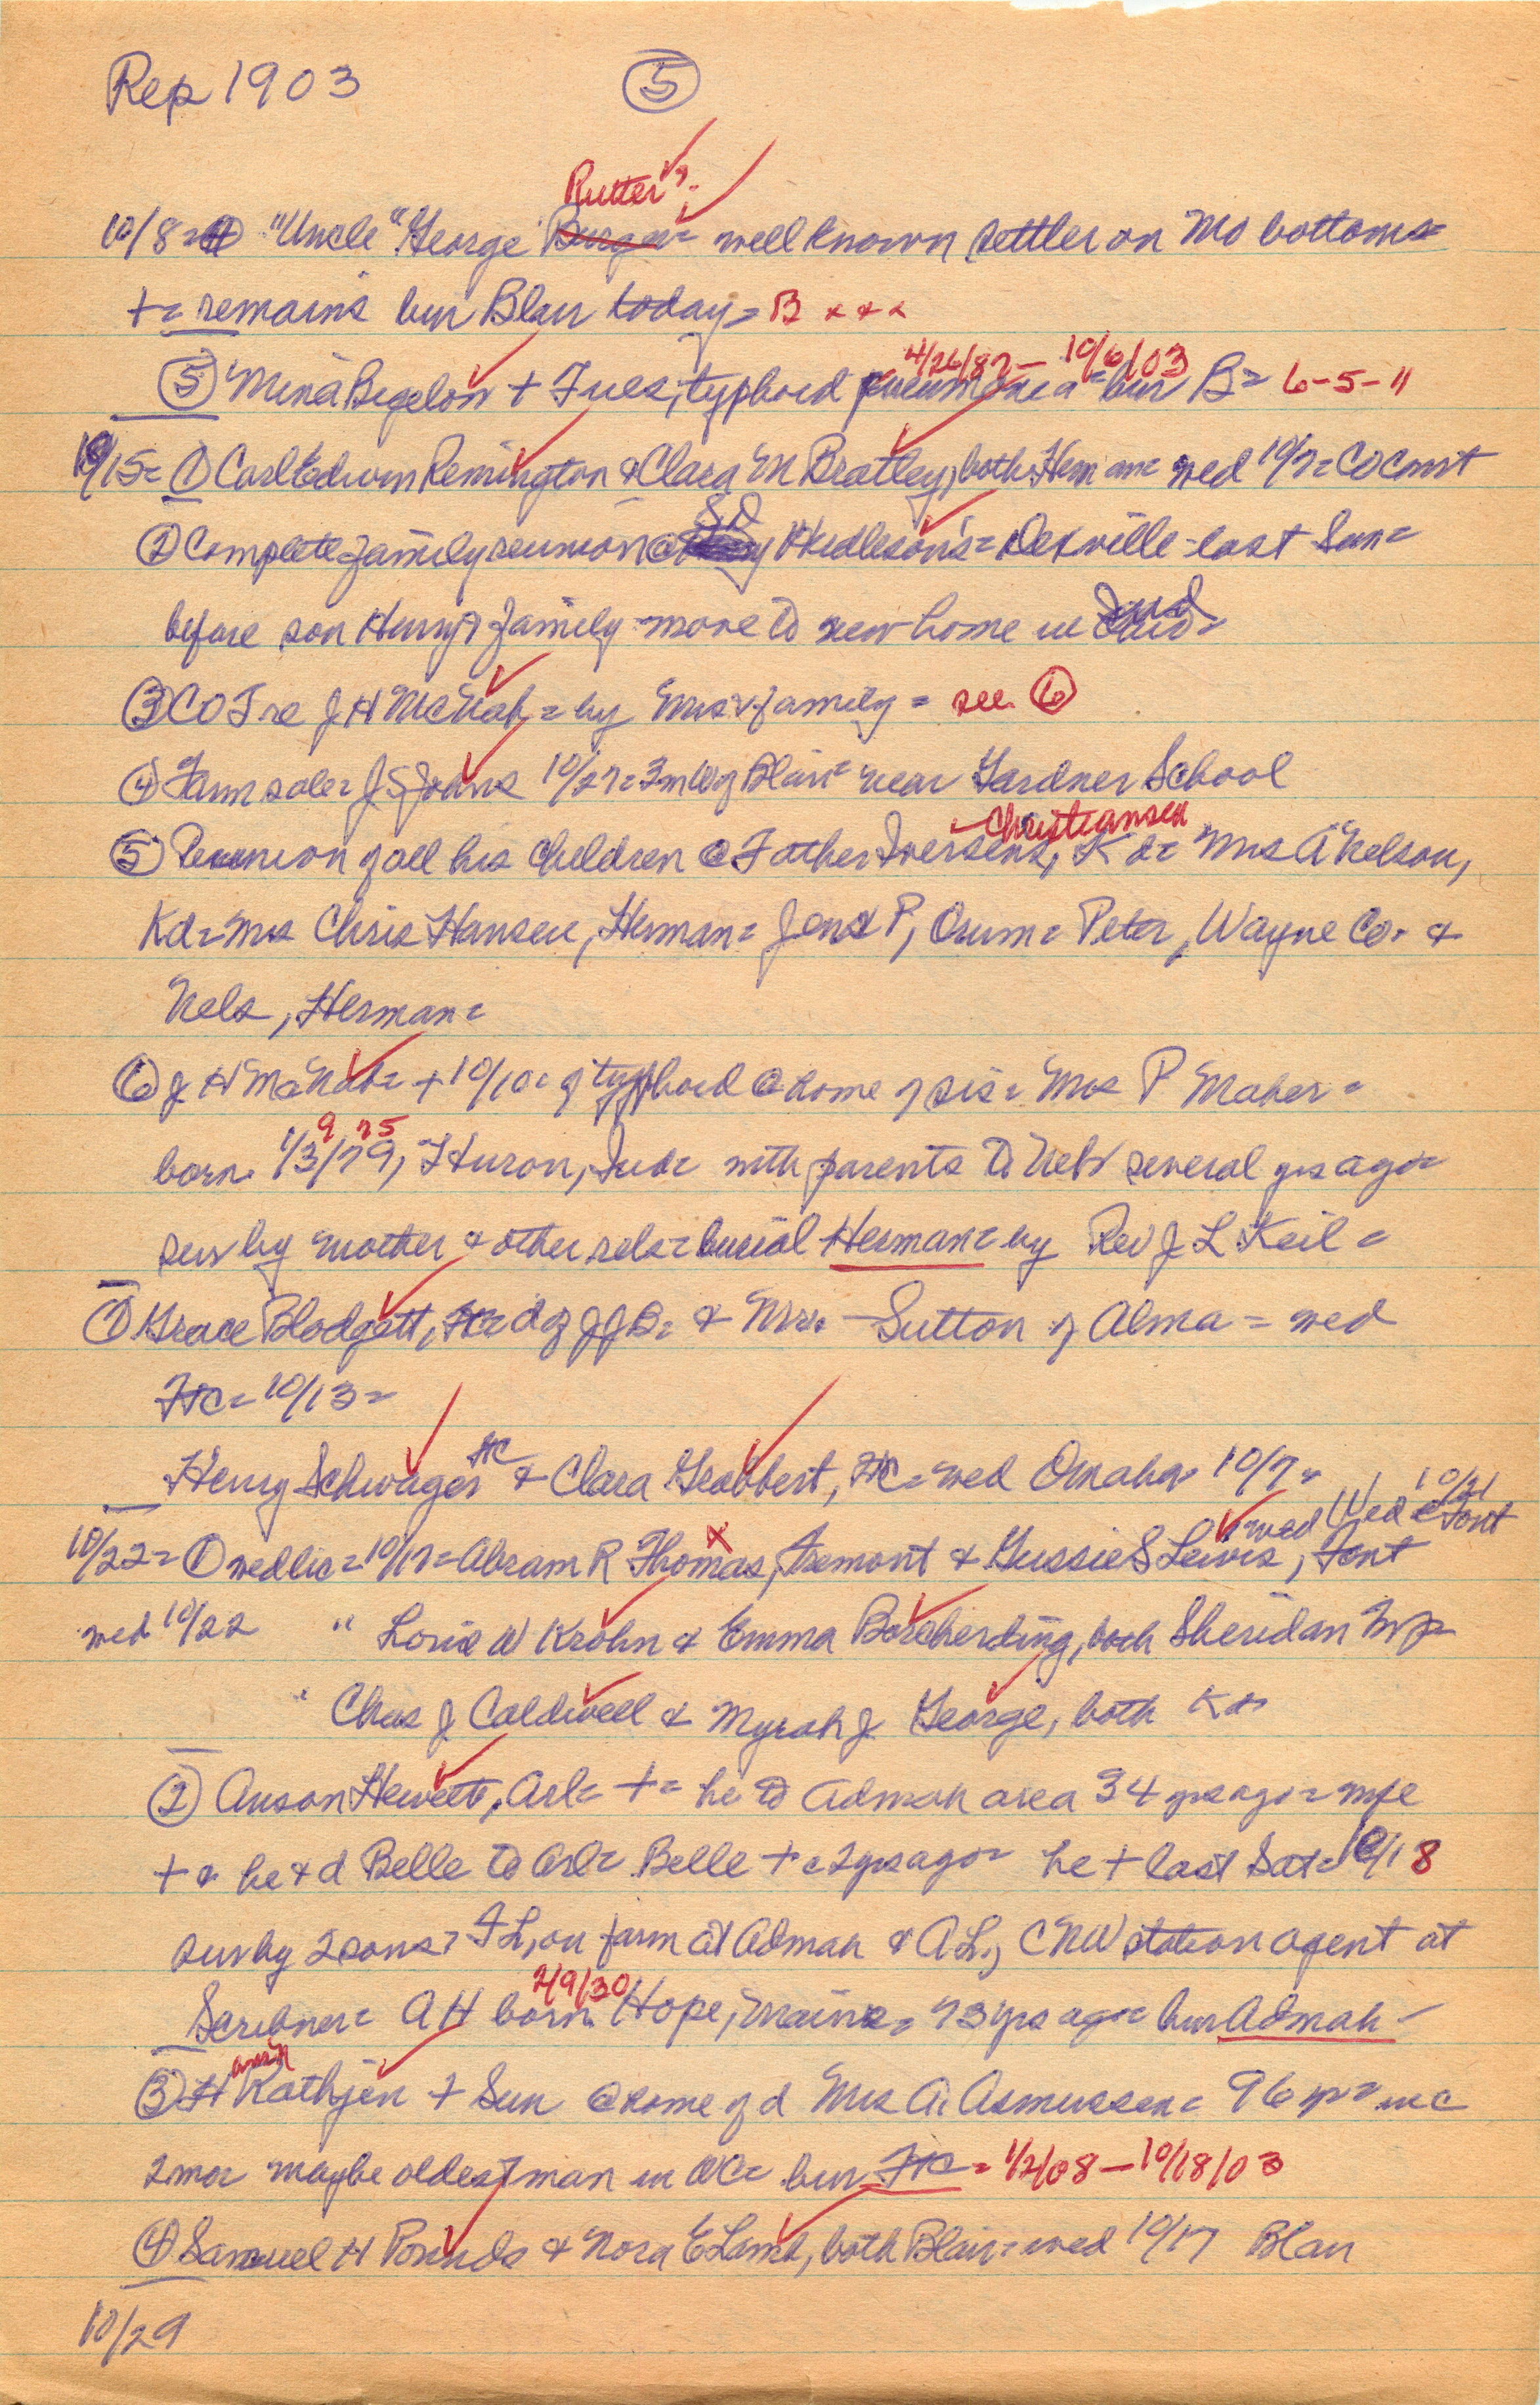 Rep 1903 ⑤
Rutter?
10/8= ④ "Uncle" George Burger= well known settler on Mo bottoms=
+= remains bur Blair today= B x x x
4/26/87 – 10/6/03
⑤ Mina Bigelow + Tues, typhoid pneumonia= bur B= 6-5-11
10/15= ① Carl Edwin Remington & Clara M Bratley, both Herman= wed 10/7= CO Court
SD
② Complete family reunion @ Hudleson's= DeXville last Sun=
before son Henry & family move to new home in
③ COT re J H McNab= by Mrs & family= see ⑥
④ Farm sale= J S Johns 10/27= 3 m W of Blair= near Gardner School
Christiansen
⑤ Reunion of all his children @ Father Iversens, Kd= Mrs A Nelson,
Kd= Mrs Chris Hansen, Herman= Jens P, Orum= Peter, Wayne Co. &
Nels, Herman=
⑥ J H McNab= + 10/10= of typhoid @ home of sis= Mrs P Maher=
9 75
born 1/3/79, Huron, Ind= with parents to Neb several yrs ago=
surv by mother & other rels= burial Herman= by Rev J L Keil=
⑦ Grace Blodgett, FtC= d of J J B= & Mr. — Sutton of Alma= wed
FtC= 10/13=
Henry Schwager FtC & Clara Grabbert, FtC= wed Omaha= 10/7=
wed Wed @ Font 10/21
10/22= ① wed lic= 10/17= Abram R Thomas, Fremont & Gussie S Lewis, Font
wed 10/22 " Louie W Krohn & Emma Borcherding, both Sheridan Twp=
" Chas J Caldwell & Myrah J George, both Kd=
② Anson Hewett, Arl= += he to Admah area 34 yrs ago= wife
+= he & d Belle to Arl= Belle + c 2 yrs ago= he + last Sat= 10/18
surv by 2 sons= F L, on farm at Admah & A L, CNW station agent at
2/9/30
Scribner= A H born Hope, Maine= 73 yrs ago= bur Admah
③ H Rathjen + Sun @ home of d Mrs A. Asmussen= 96 yr= inc
2 mo= maybe oldest man in WC= bur FtC= 1/2/08 – 10/18/03
④ Samuel H Pounds & Nora E Lamb, both Blair= wed 10/17 Blair
10/29